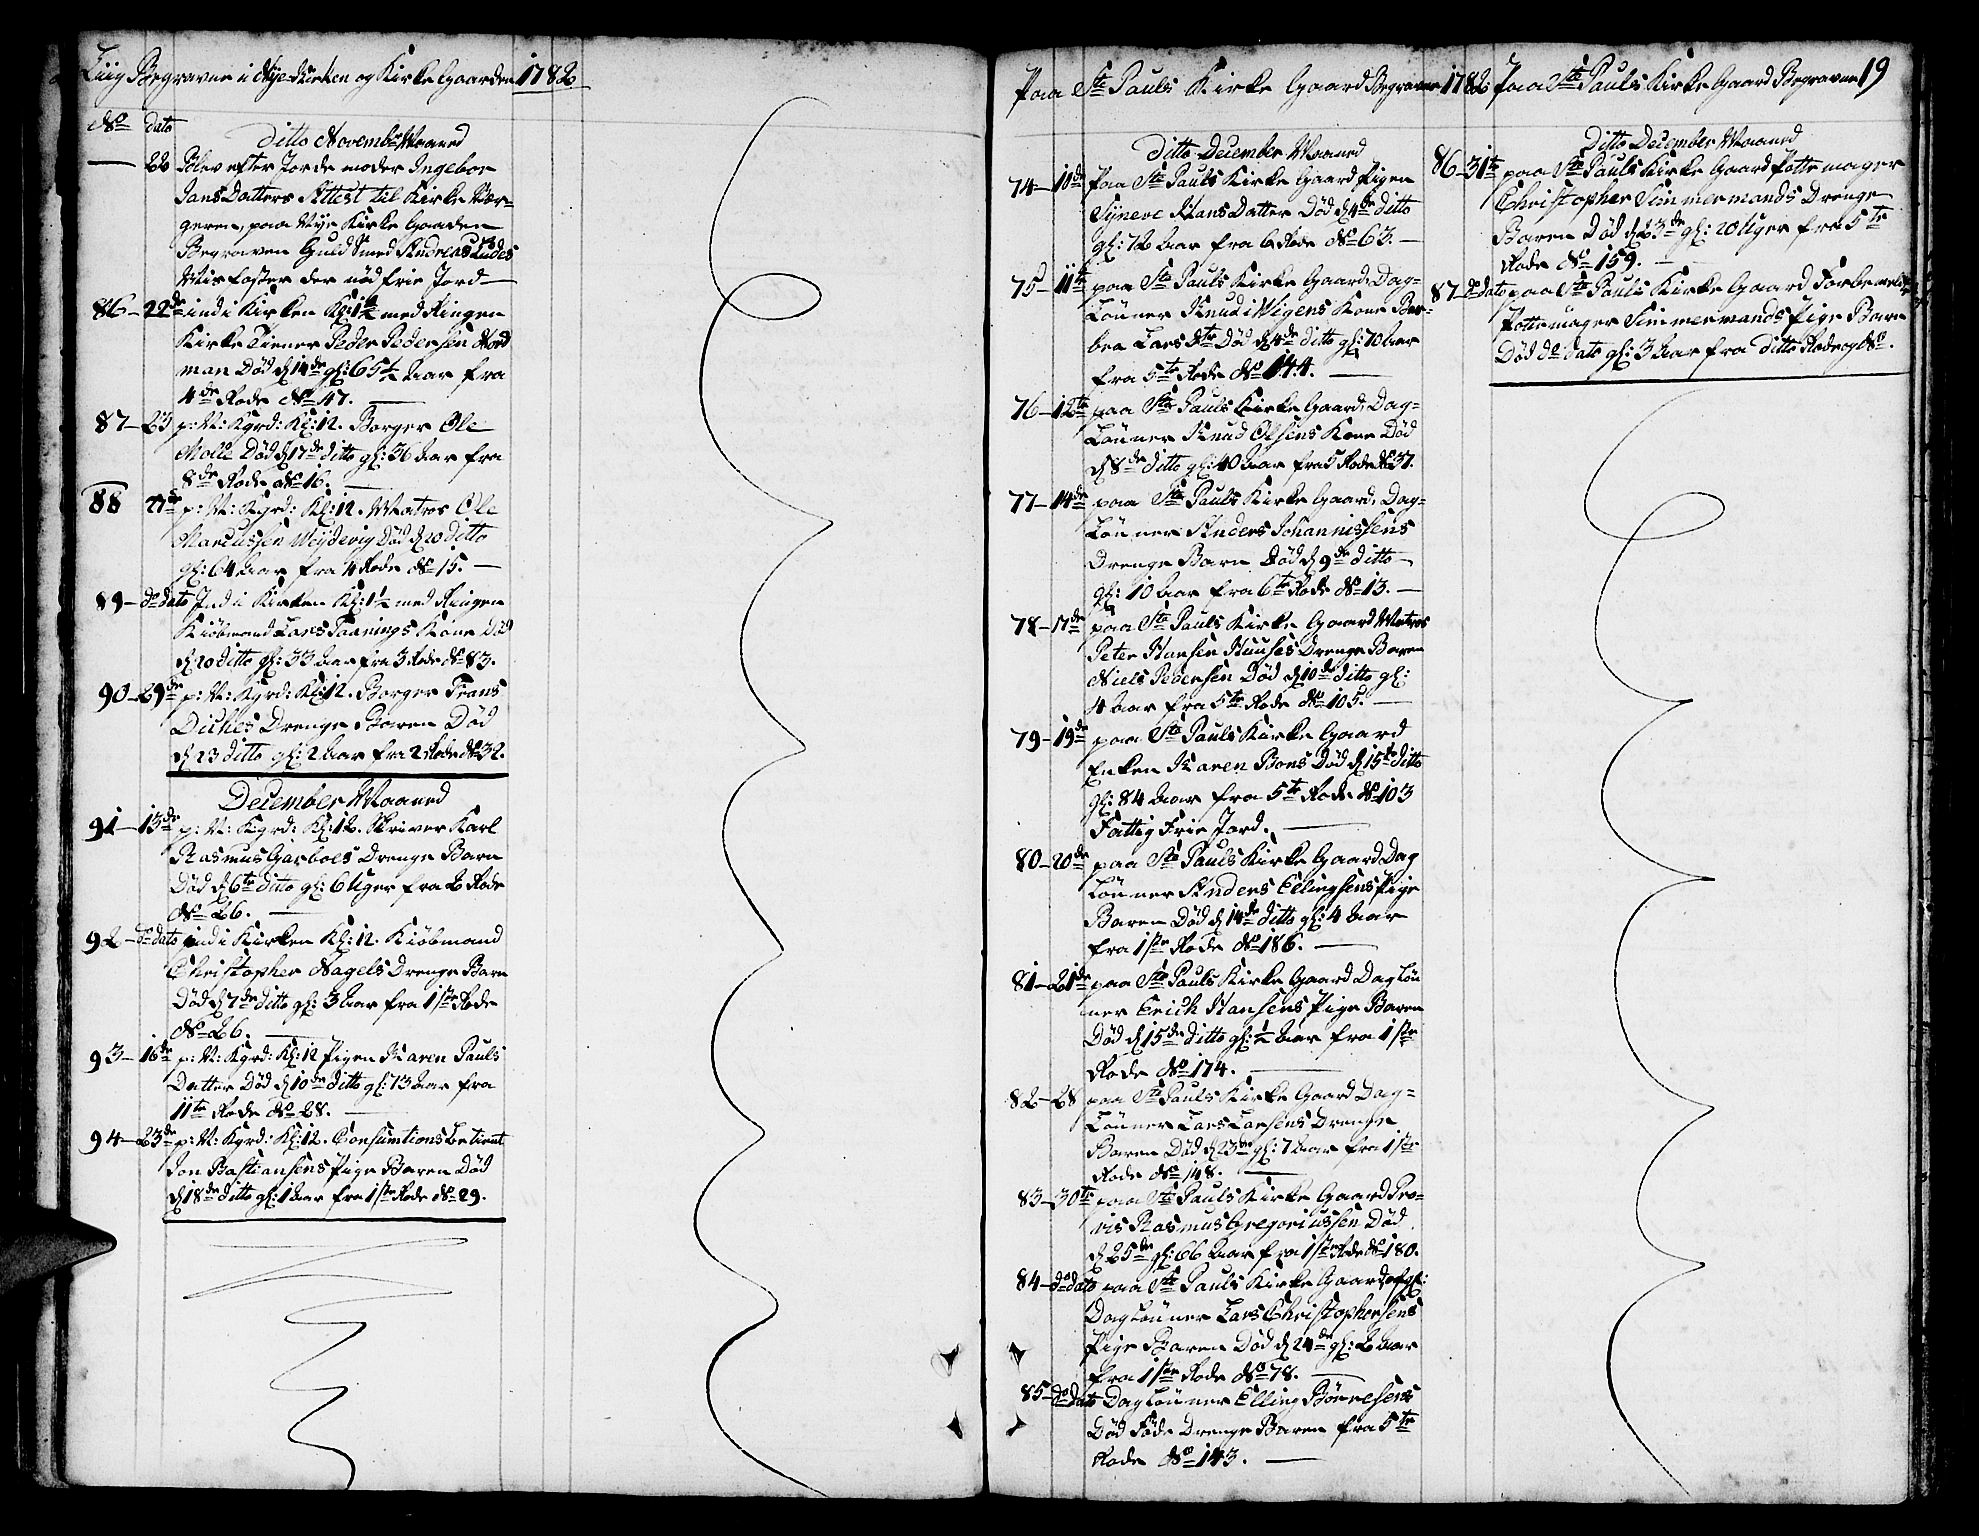 Liig Begraven i Nye Kirken og Kirke Gaarden 1782
No dato
Ditto Novembr Maaned
— 22 Blev efter Jorde moder Ingebor
Jans Datters Attest til Kirke Vær-
geren, paa Nye Kirke Gaarden
Begraven Guld Smed Andreas
Misfoster der nød frie Jord —
86 — 22de ind i Kirken Kl: 1½ med Ringen
Kirke Tiener Peder Pedersen Nord
man Død d 14de gl: 65½ aar fra
4de Rode No 47. —
87 — 23 p: N: Kgrd: Kl: 12. Borger Ole
Molle Død d 17de ditto gl: 36 aar fra
8de Rode No 16. —
88 27de p: N: Kgrd: Kl: 12. Matros Ole
Marcussen Weydevig Død d 20 ditto
gl: 64 aar fra 4 Rode No 15. —
89 — do dato Ind i Kirken Kl: 1½ med Ringen
Kiøbmand Lars Taanings Kone Død
d 20 ditto gl: 33 aar fra 3 Rode No 83.
90 — 29de p: N: Kgrd: Kl: 12. Borger Frans
Dickes Drenge Baren Død
d 23 ditto gl: 2 aar fra 2 Rode No 32.
December Maaned
91 — 13de p: N: Kgrd: Kl: 12. Skriver Karl
Rasmus Garboes Drenge Barn
Død d 6te ditto gl: 6 Uger fra 2 Rode
No 26. —
92 — do dato ind i Kirken Kl: 12. Kiøbmand
Christopher Nagels Drenge Barn
Død d 7de ditto gl: 3 aar fra 1ste Rode
No 26. —
93 — 16de p: N: Kgrd: Kl: 12 Pigen Karen Pauls
Datter Død d 10de ditto gl: 73 aar fra
11te Rode No 28. —
94 — 23de p: N: Kgrd: Kl: 12. Consumtions betient
Jon Bastiansens Pige Baren Død
d 18de ditto gl: 1 aar fra 1ste Rode No 29.
Paa Ste Pauls Kirke Gaard Begraven 1782
Ditto December Maaned
74 — 10de Paa Ste Pauls Kirke Gaard Pigen
Syneve Hans Datter Død d 4de ditto
gl: 72 aar fra 6 Rode No 63. —
75 — 11te paa Ste Pauls Kirke Gaard, Dag-
Lønner Knud Wigens Kone Bar-
bra Lars Dtr Død d 4de ditto gl: 70 aar
fra 5te Rode No 144. —
76 — 12te paa Ste Pauls Kirke Gaard, Dag-
Lønner Knud Olsens Kone Død
d 8de ditto gl: 40 aar fra 5 Rode No 37.
77 — 14de paa Ste Pauls Kirke Gaard, Dag-
Lønner Anders Johannissens
Drenge Barn Død d 9de ditto
gl: 10 aar fra 6te Rode No 13. —
78 — 17de paa Ste Pauls Kirke Gaard Matros
Peter Hansen Huuses Drenge Baren
Niels Pedersen Død d 10de ditto gl:
4 aar fra 5te Rode No 105. —
79 — 19de paa Ste Pauls Kirke Gaard
Enken Karen Bons Død d 15de ditto
gl: 84 aar fra 5te Rode No 103
Fattig Frie Jord. —
80 — 20de paa Ste Pauls Kirke Gaard Dag
Lønner Anders Ellingsens Pige
Baren Død d 14de ditto gl: 4 aar
fra 1ste Rode No 186. —
81 — 21de paa Ste Pauls Kirke Gaard Dagløn
ner Erich Hansens Pige Baren
Død d 15de ditto gl: ½ aar fra 1ste
Rode No 174. —
82 — 28 paa Ste Pauls Kirke Gaard Dag-
Lønner Lars Larsens Drenge
Baren Død d 23de gl: 7 aar fra 1ste
Rode No 148. —
83 — 30te paa Ste Pauls Kirke Gaard Pro-
vis Rasmus Gregoriussen Død
d 25de gl: 66 aar fra 1ste Rode No 180.
84 — do dato paa Ste Pauls Kirke Gaard
Daglønner Lars Christophersens
Pige Baren Død d 24de gl: 2 aar
fra 1ste Rode No 78. —
85 — do dato Daglønner Elling Børresens
Død Føde Drenge Baren fra 5te
Rode No 143. —
Paa Ste Pauls Kirke Gaard Begraven 19
Ditto December Maaned
86 — 31te paa Ste Pauls Kirke Gaard Pottemager
Christopher Simmermands Drenge
Baren Død d 23de gl: 20 Uger fra 5te
Rode No 159. —
87 — do dato paa Ste Pauls Kirke Gaard Forbemeldte
Pottemager Simmermands Pige Barn
Død do dato gl: 3 aar fra ditto Rode og No.